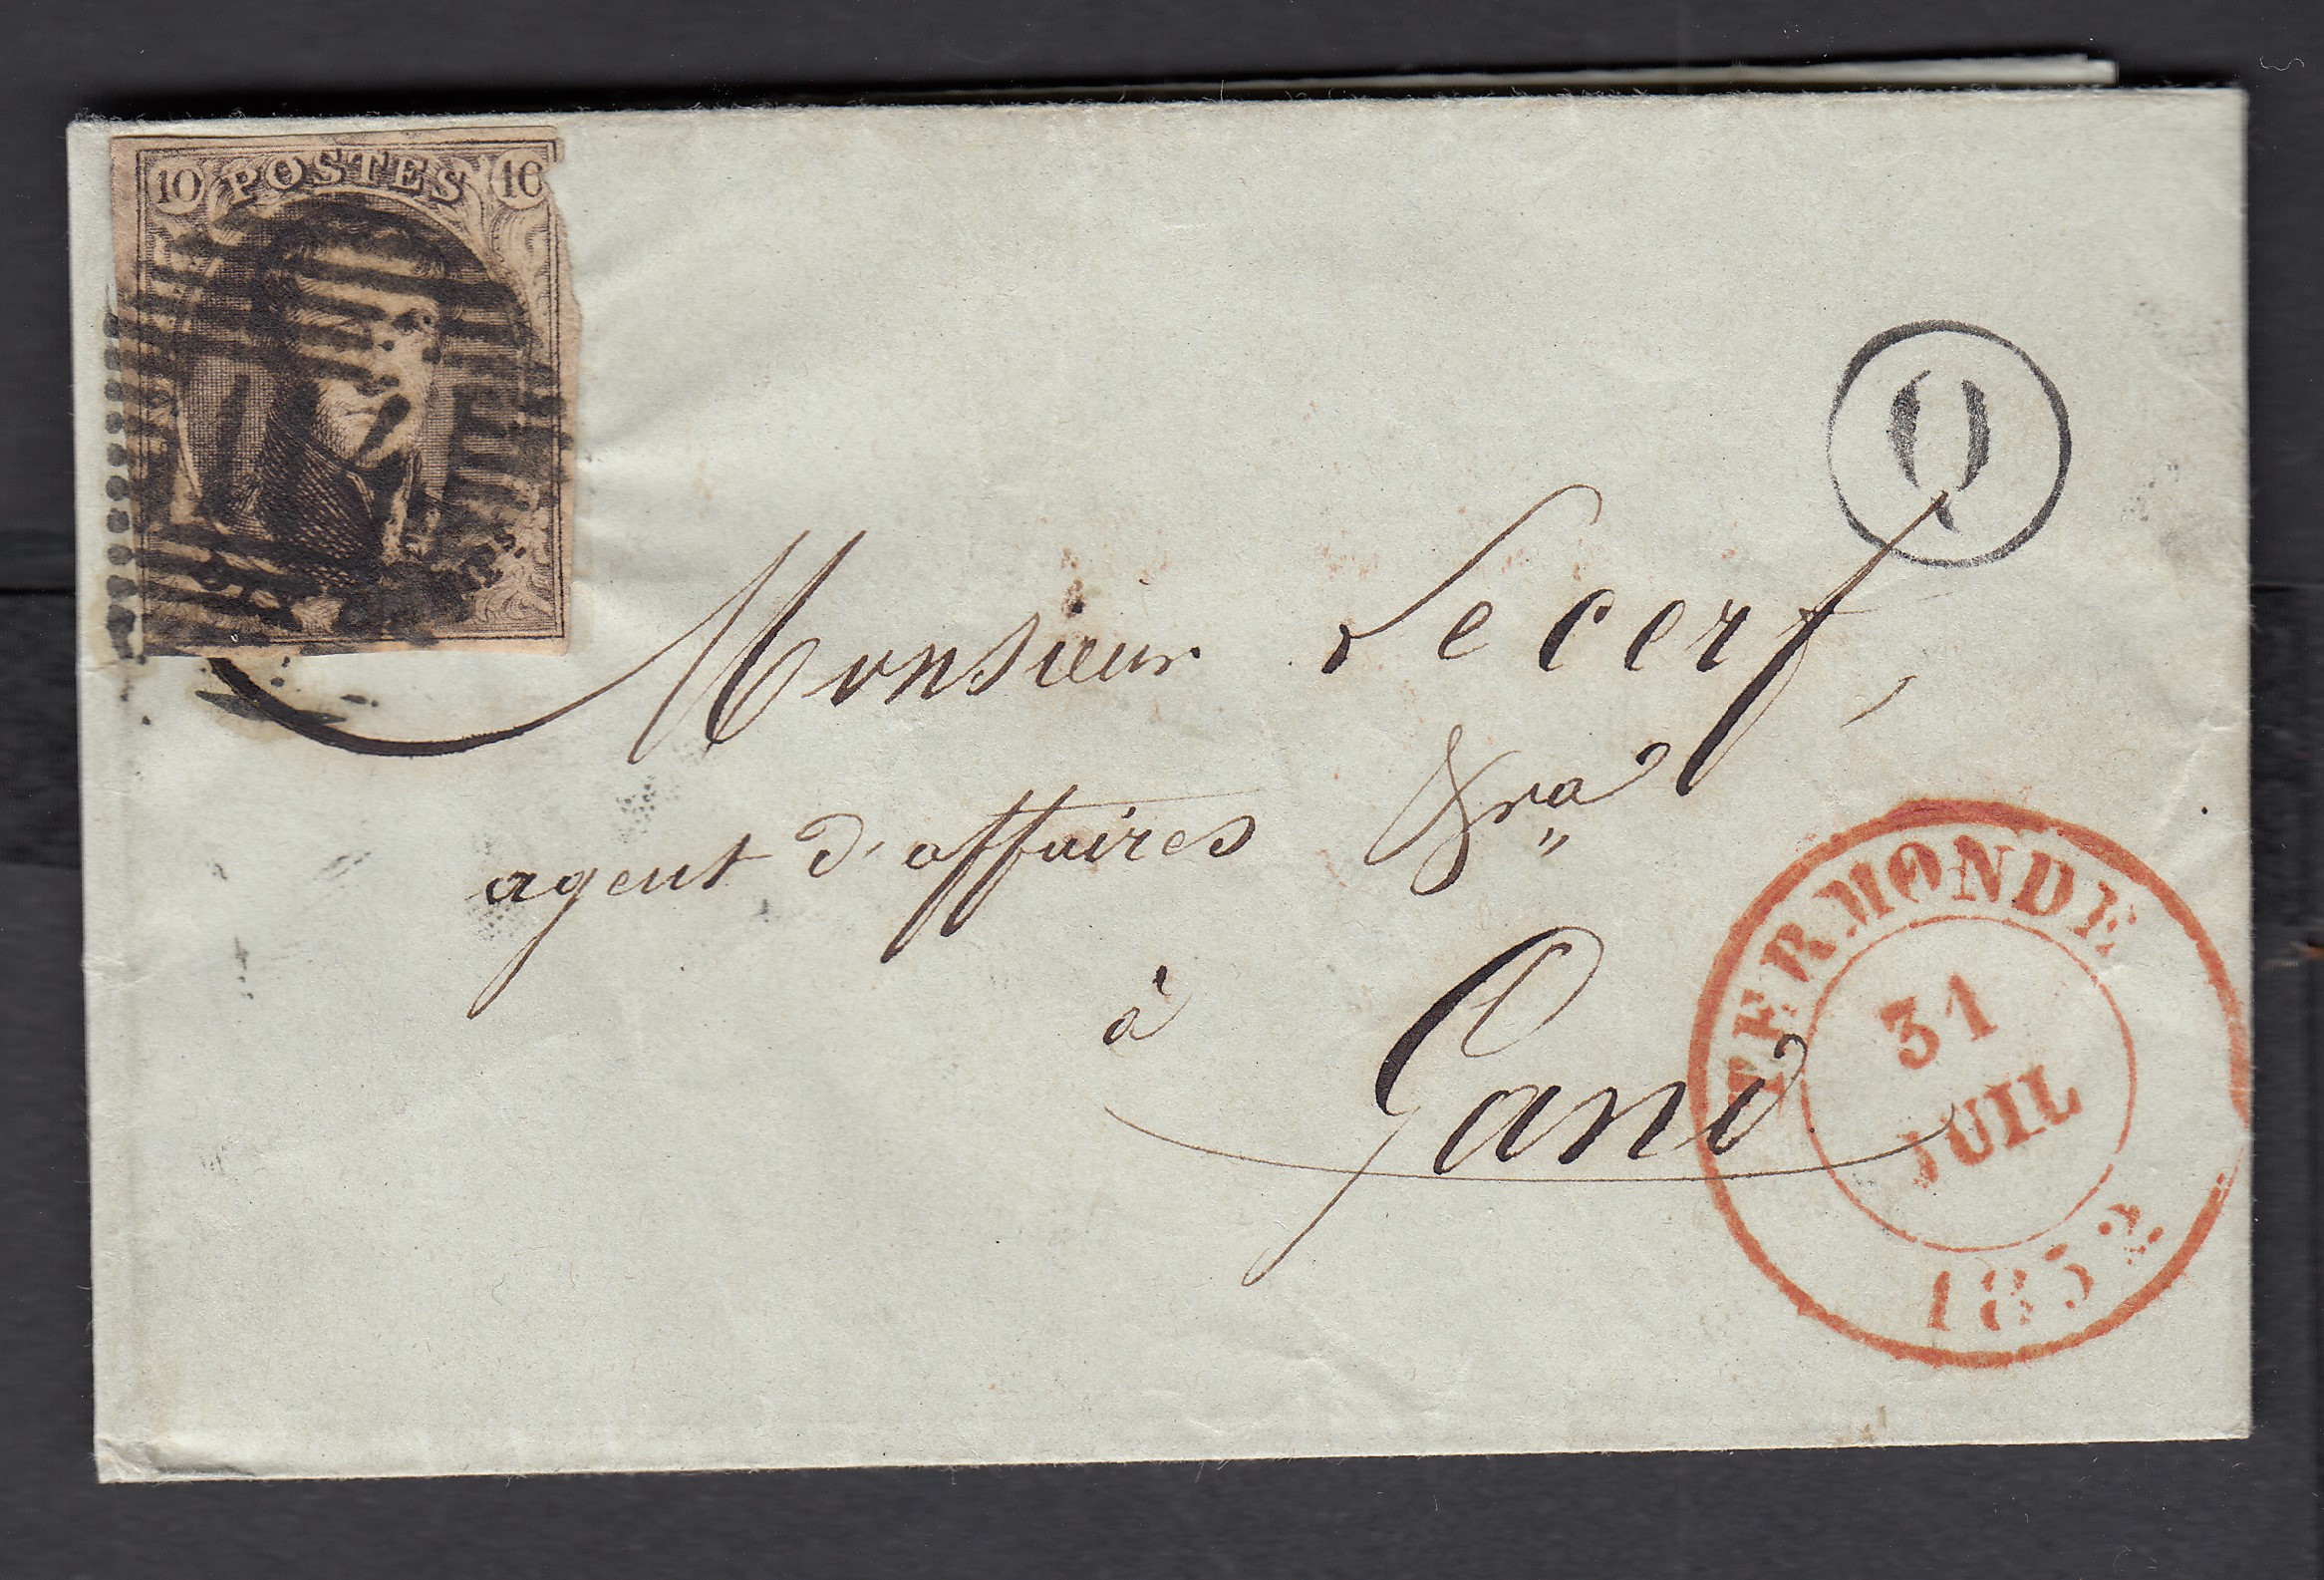 10 POSTES 10
Q
Monsieur Lecerf,
agent d'affaires &ra
à
Gand
TERMONDE
31
JUIL
1852